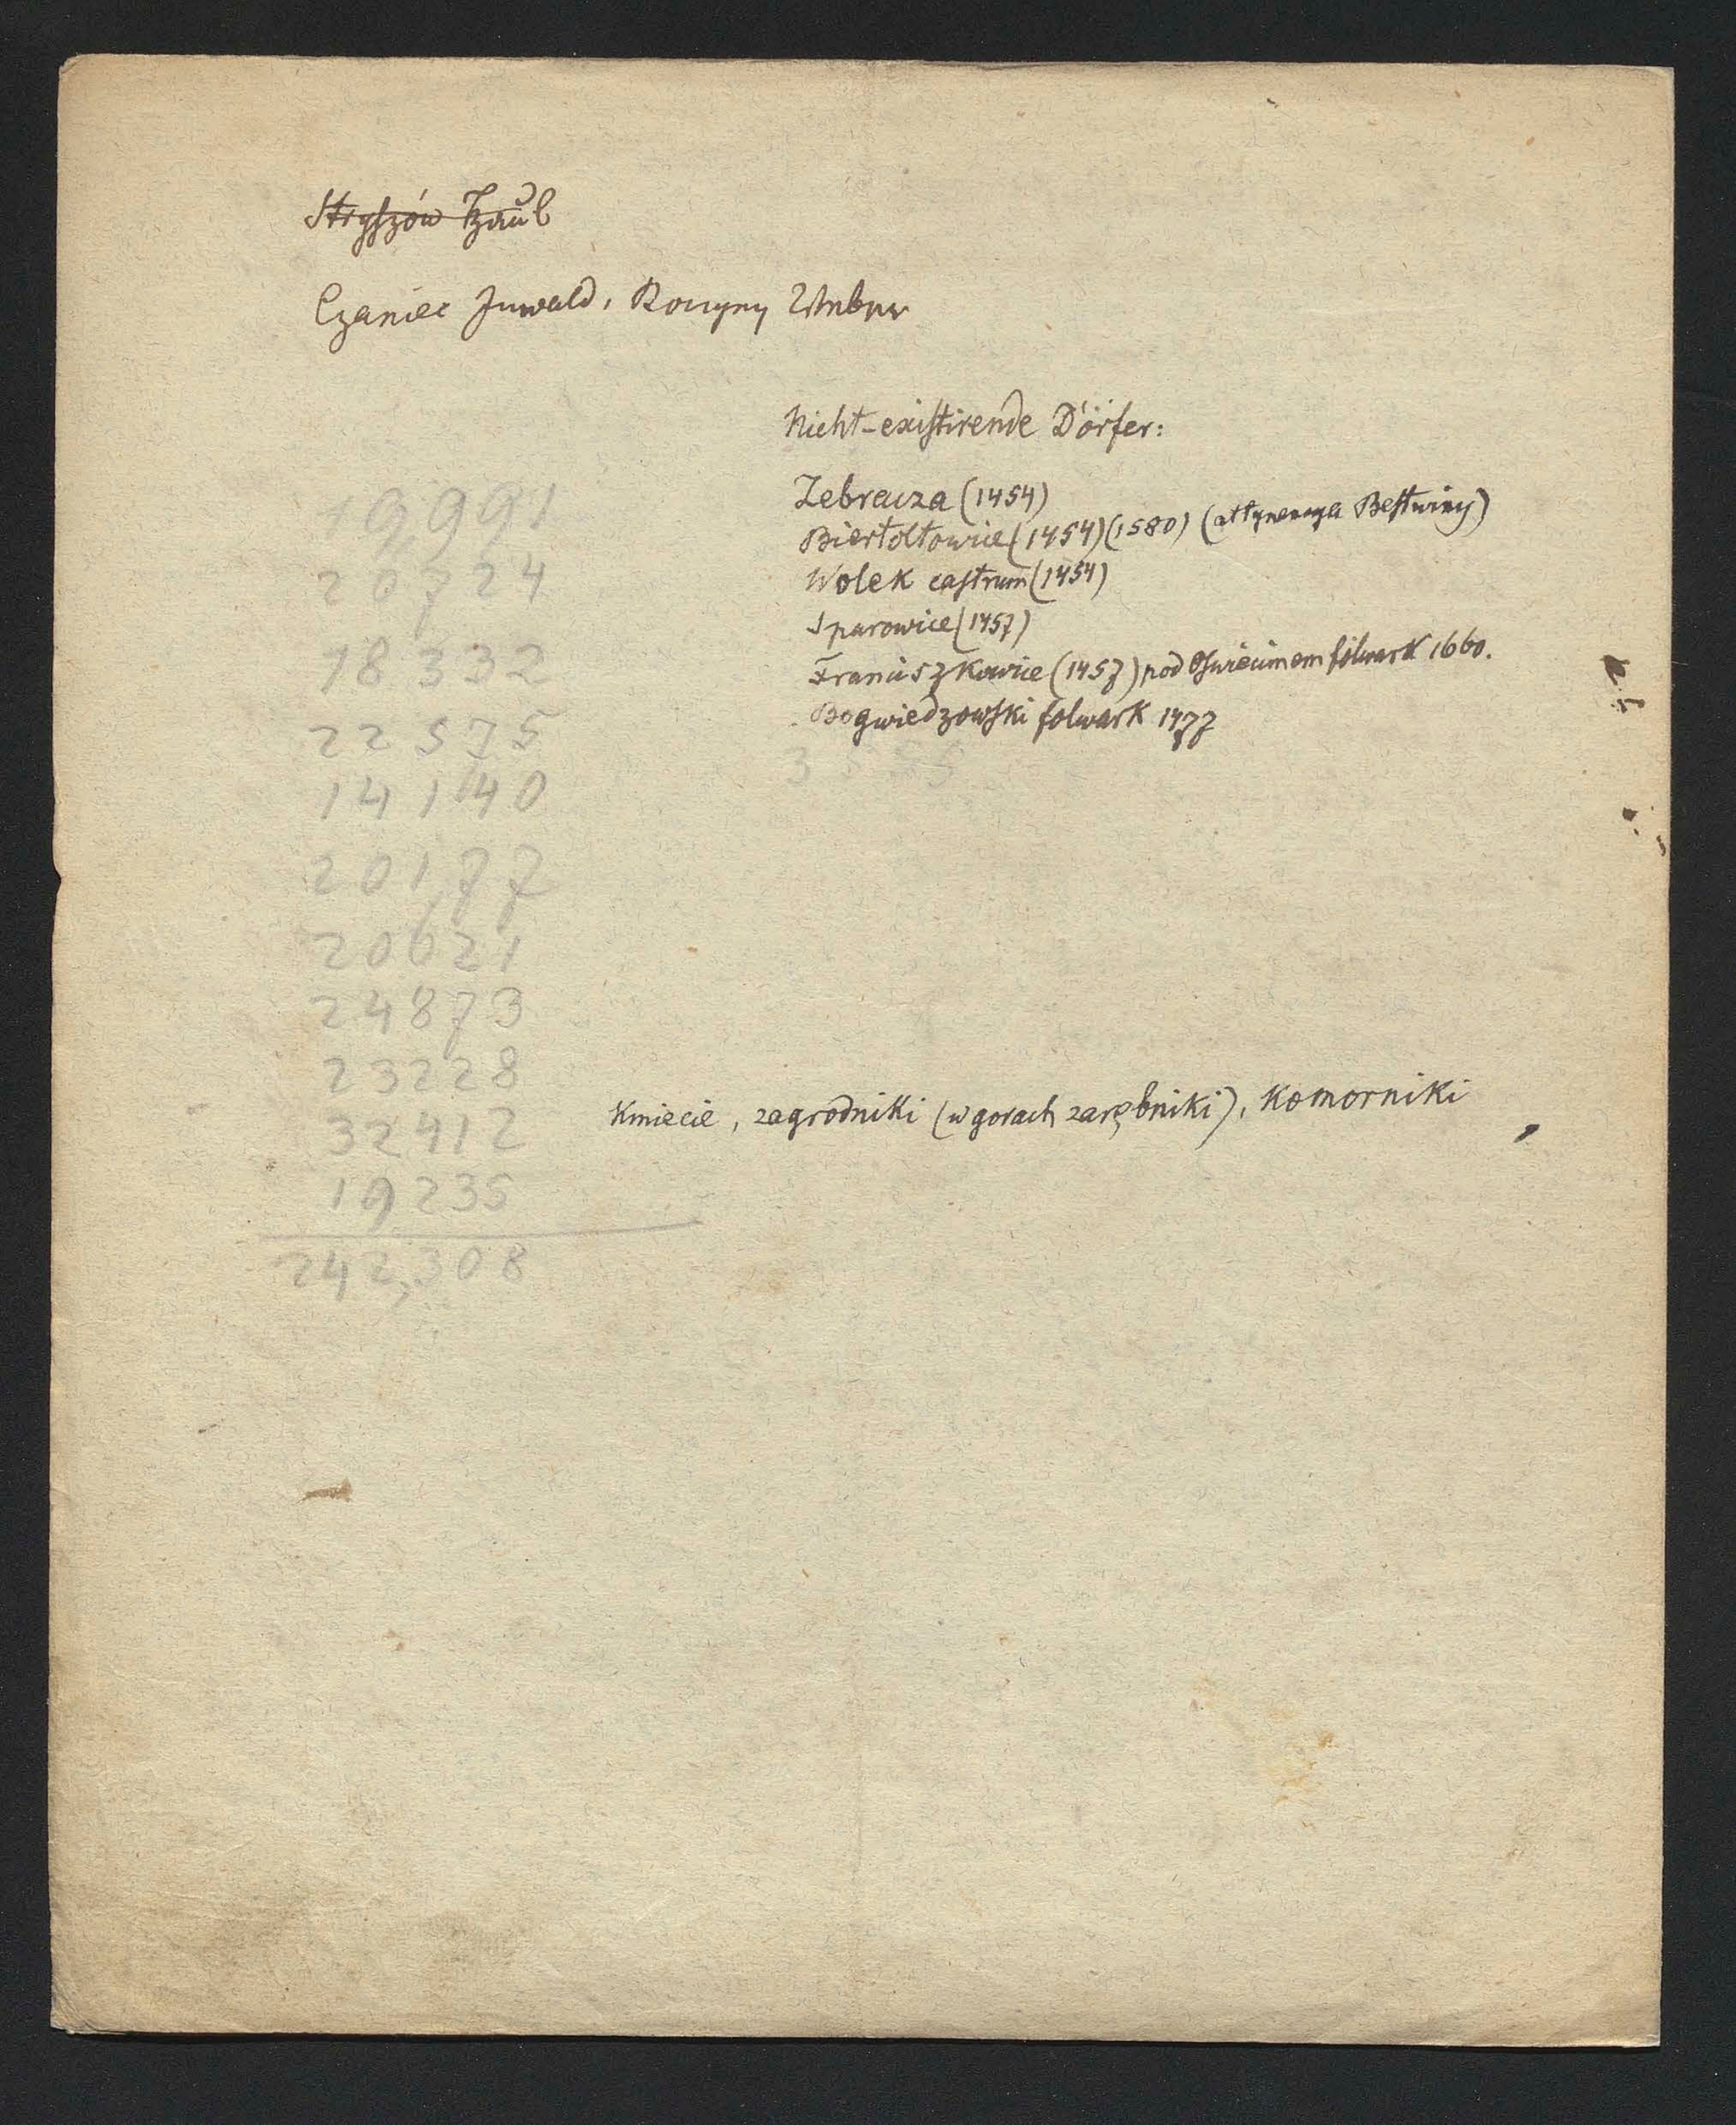 Stryszów
Czaniec Inwald, Roczyny
Nicht-existirende Dörfer:
Zebracza (1454)
Biertoltowice (1454) (1580) (attynencya Bestwiny)
Wolek castrum (1454)
Sparowice (1457)
Franciszkowice (1457) pod Oswiecimem folwark 1660.
Bogwiedzowski folwark 1477
19991
20724
18332
22575
14140
20177
20621
24873
23228
32412
19235
242,308
Kmiecie, zagrodniki (w gorach zarębniki), Komorniki